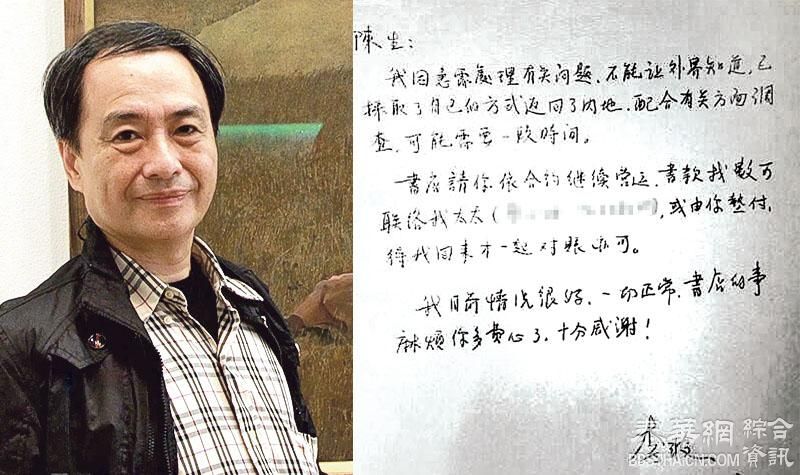 陳生：
我因急需處理有关问题，不能让外界知道，已
採取了自己的方式返回了内地，配合有关方面調
查，可能需要一段時间。
書店請你依合約继续营运，書款找數可
联络我太太（），或由你墊付，
待我回来才一起对賬亦可。
我目前情况很好，一切正常，書店的事
麻煩你多費心了，十分感谢！
華網 綜合
資訊